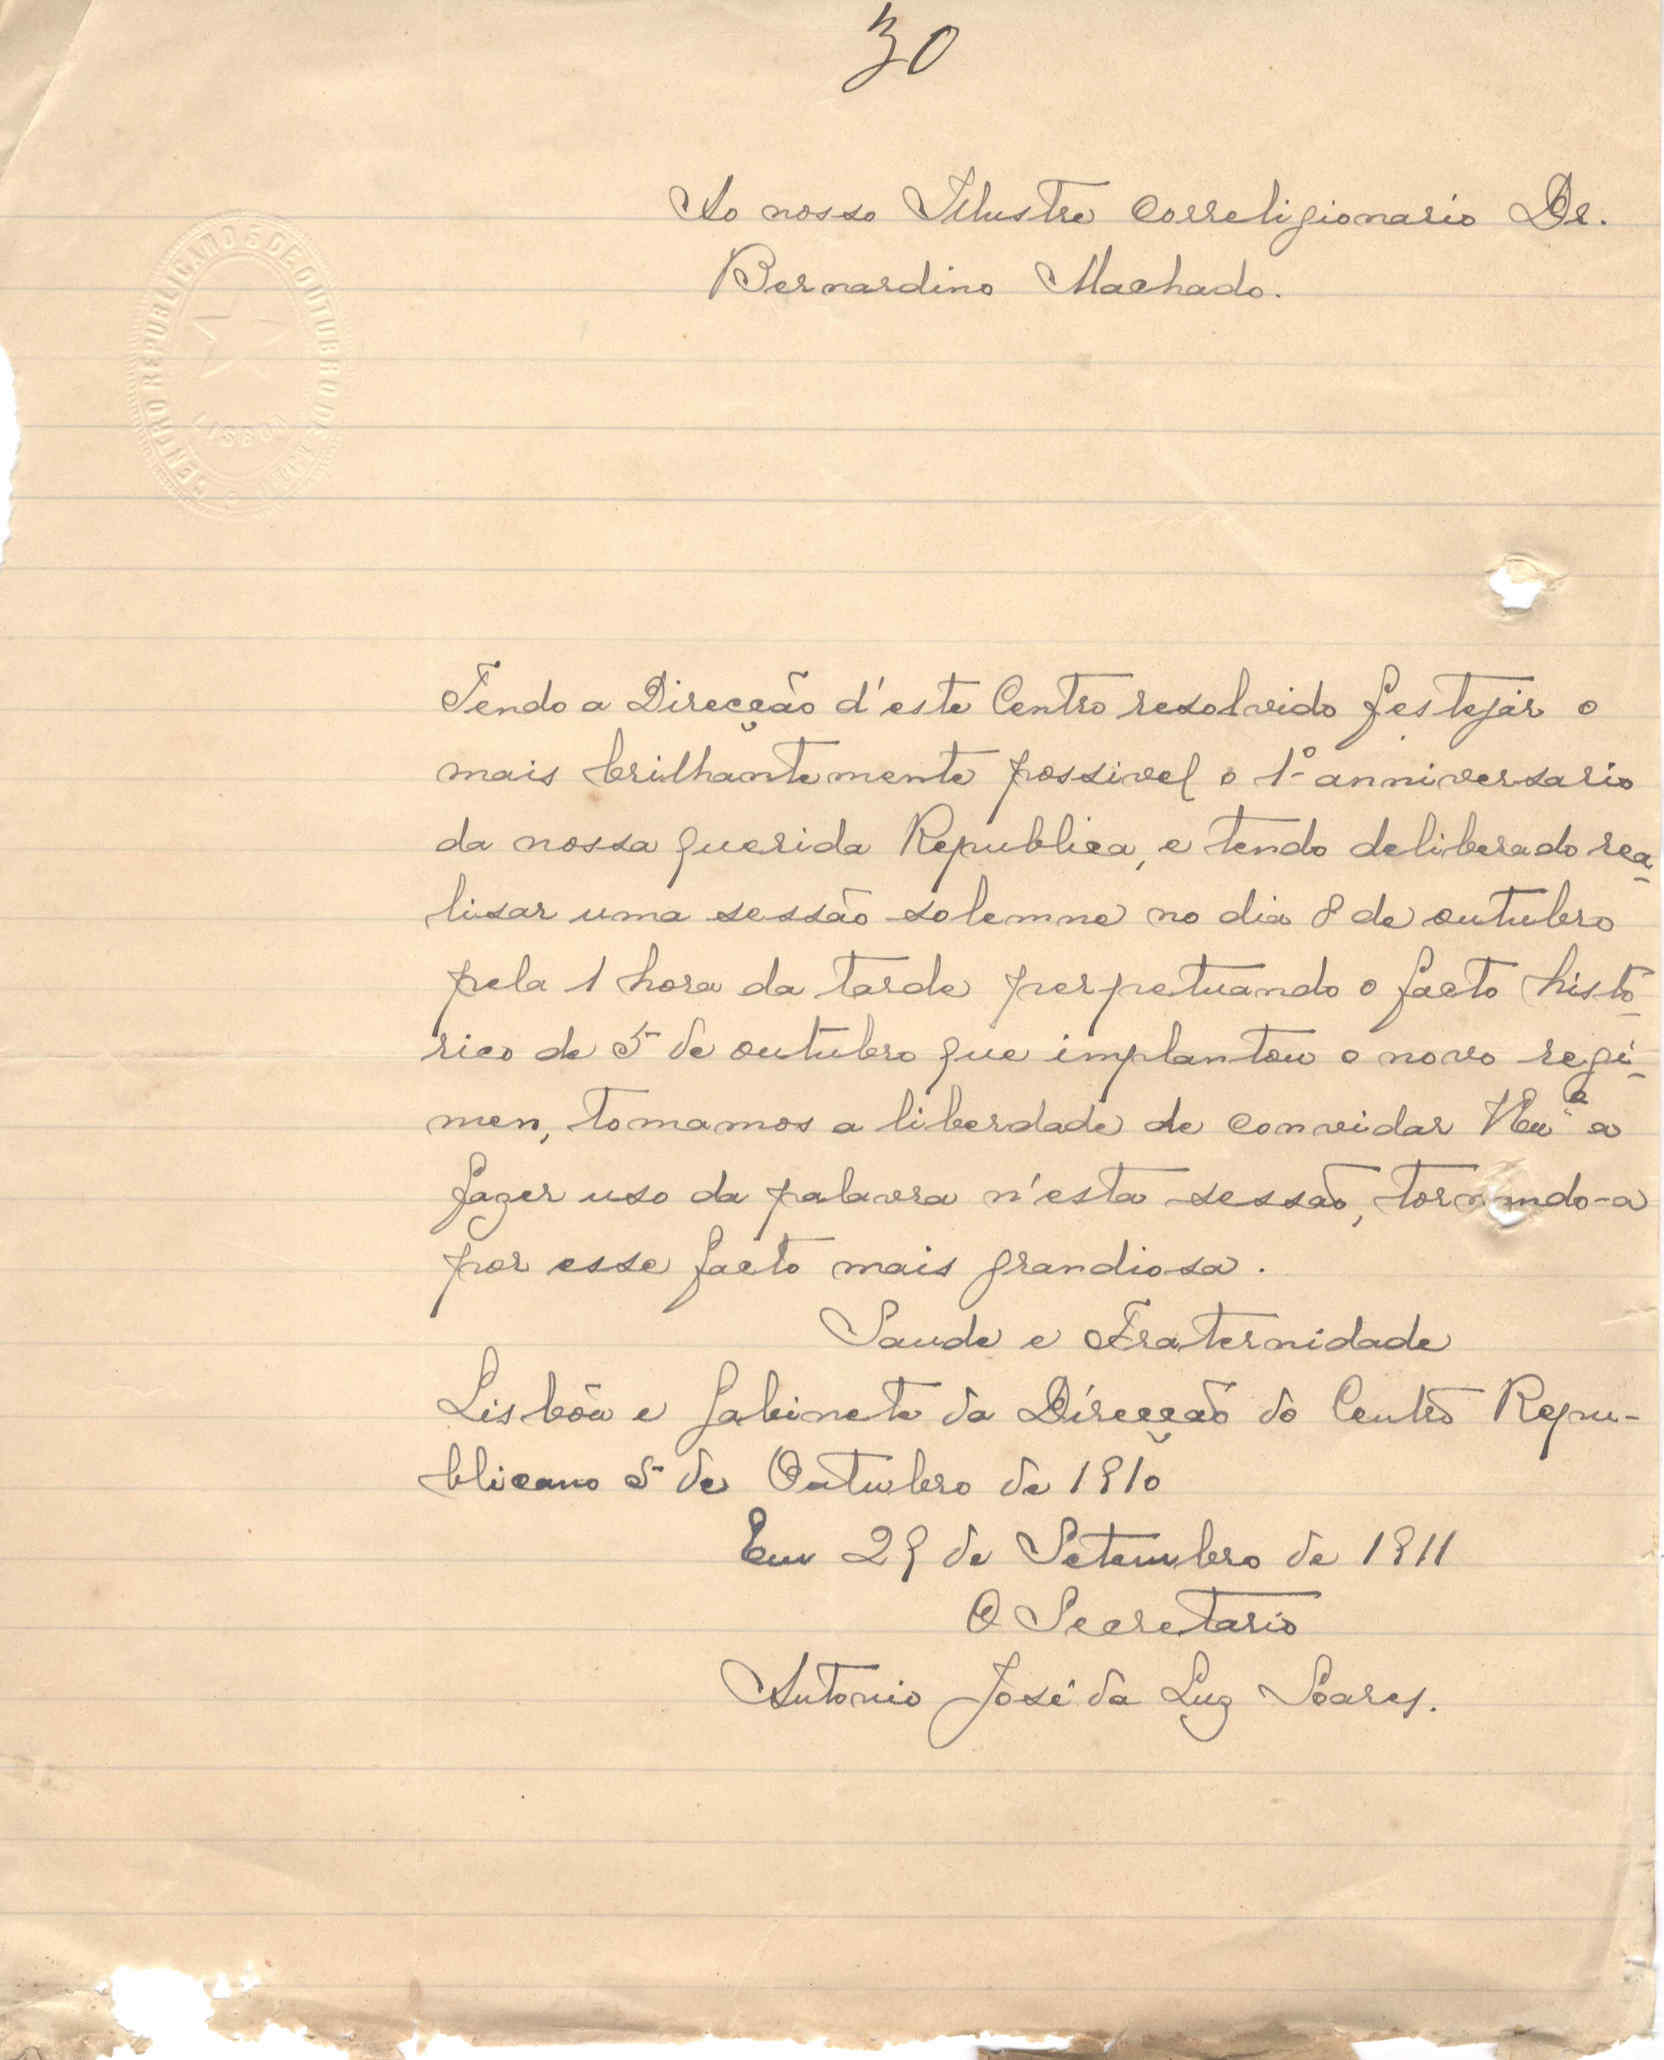 30
Ao nosso Illustre Correligionario Dr.
Bernardino Machado.
CENTRO REPUBLICANO 5 DE OUTUBRO DE
LISBOA
Tendo a Direcção d'este Centro resolvido festejár o
mais brilhantemente possivel o 1º anniversario
da nossa querida Republica, e tendo deliberado rea-
lisar uma sessão solemne no dia 8 de outubro
pela 1 hora da tarde perpetuando o facto histo-
rico de 5 de outubro que implantou o novo regi-
men, tomamos a liberdade de convidar a
fazer uso da palavra n'esta sessão, tornando-a
por esse facto mais grandiosa.
Saude e Fraternidade
Lisbôa e Gabinete da Direcção do Centro Repu-
blicano 5 de Outubro de 1910
Em 29 de Setembro de 1911
O Secretario
Antonio José da Luz Soares.